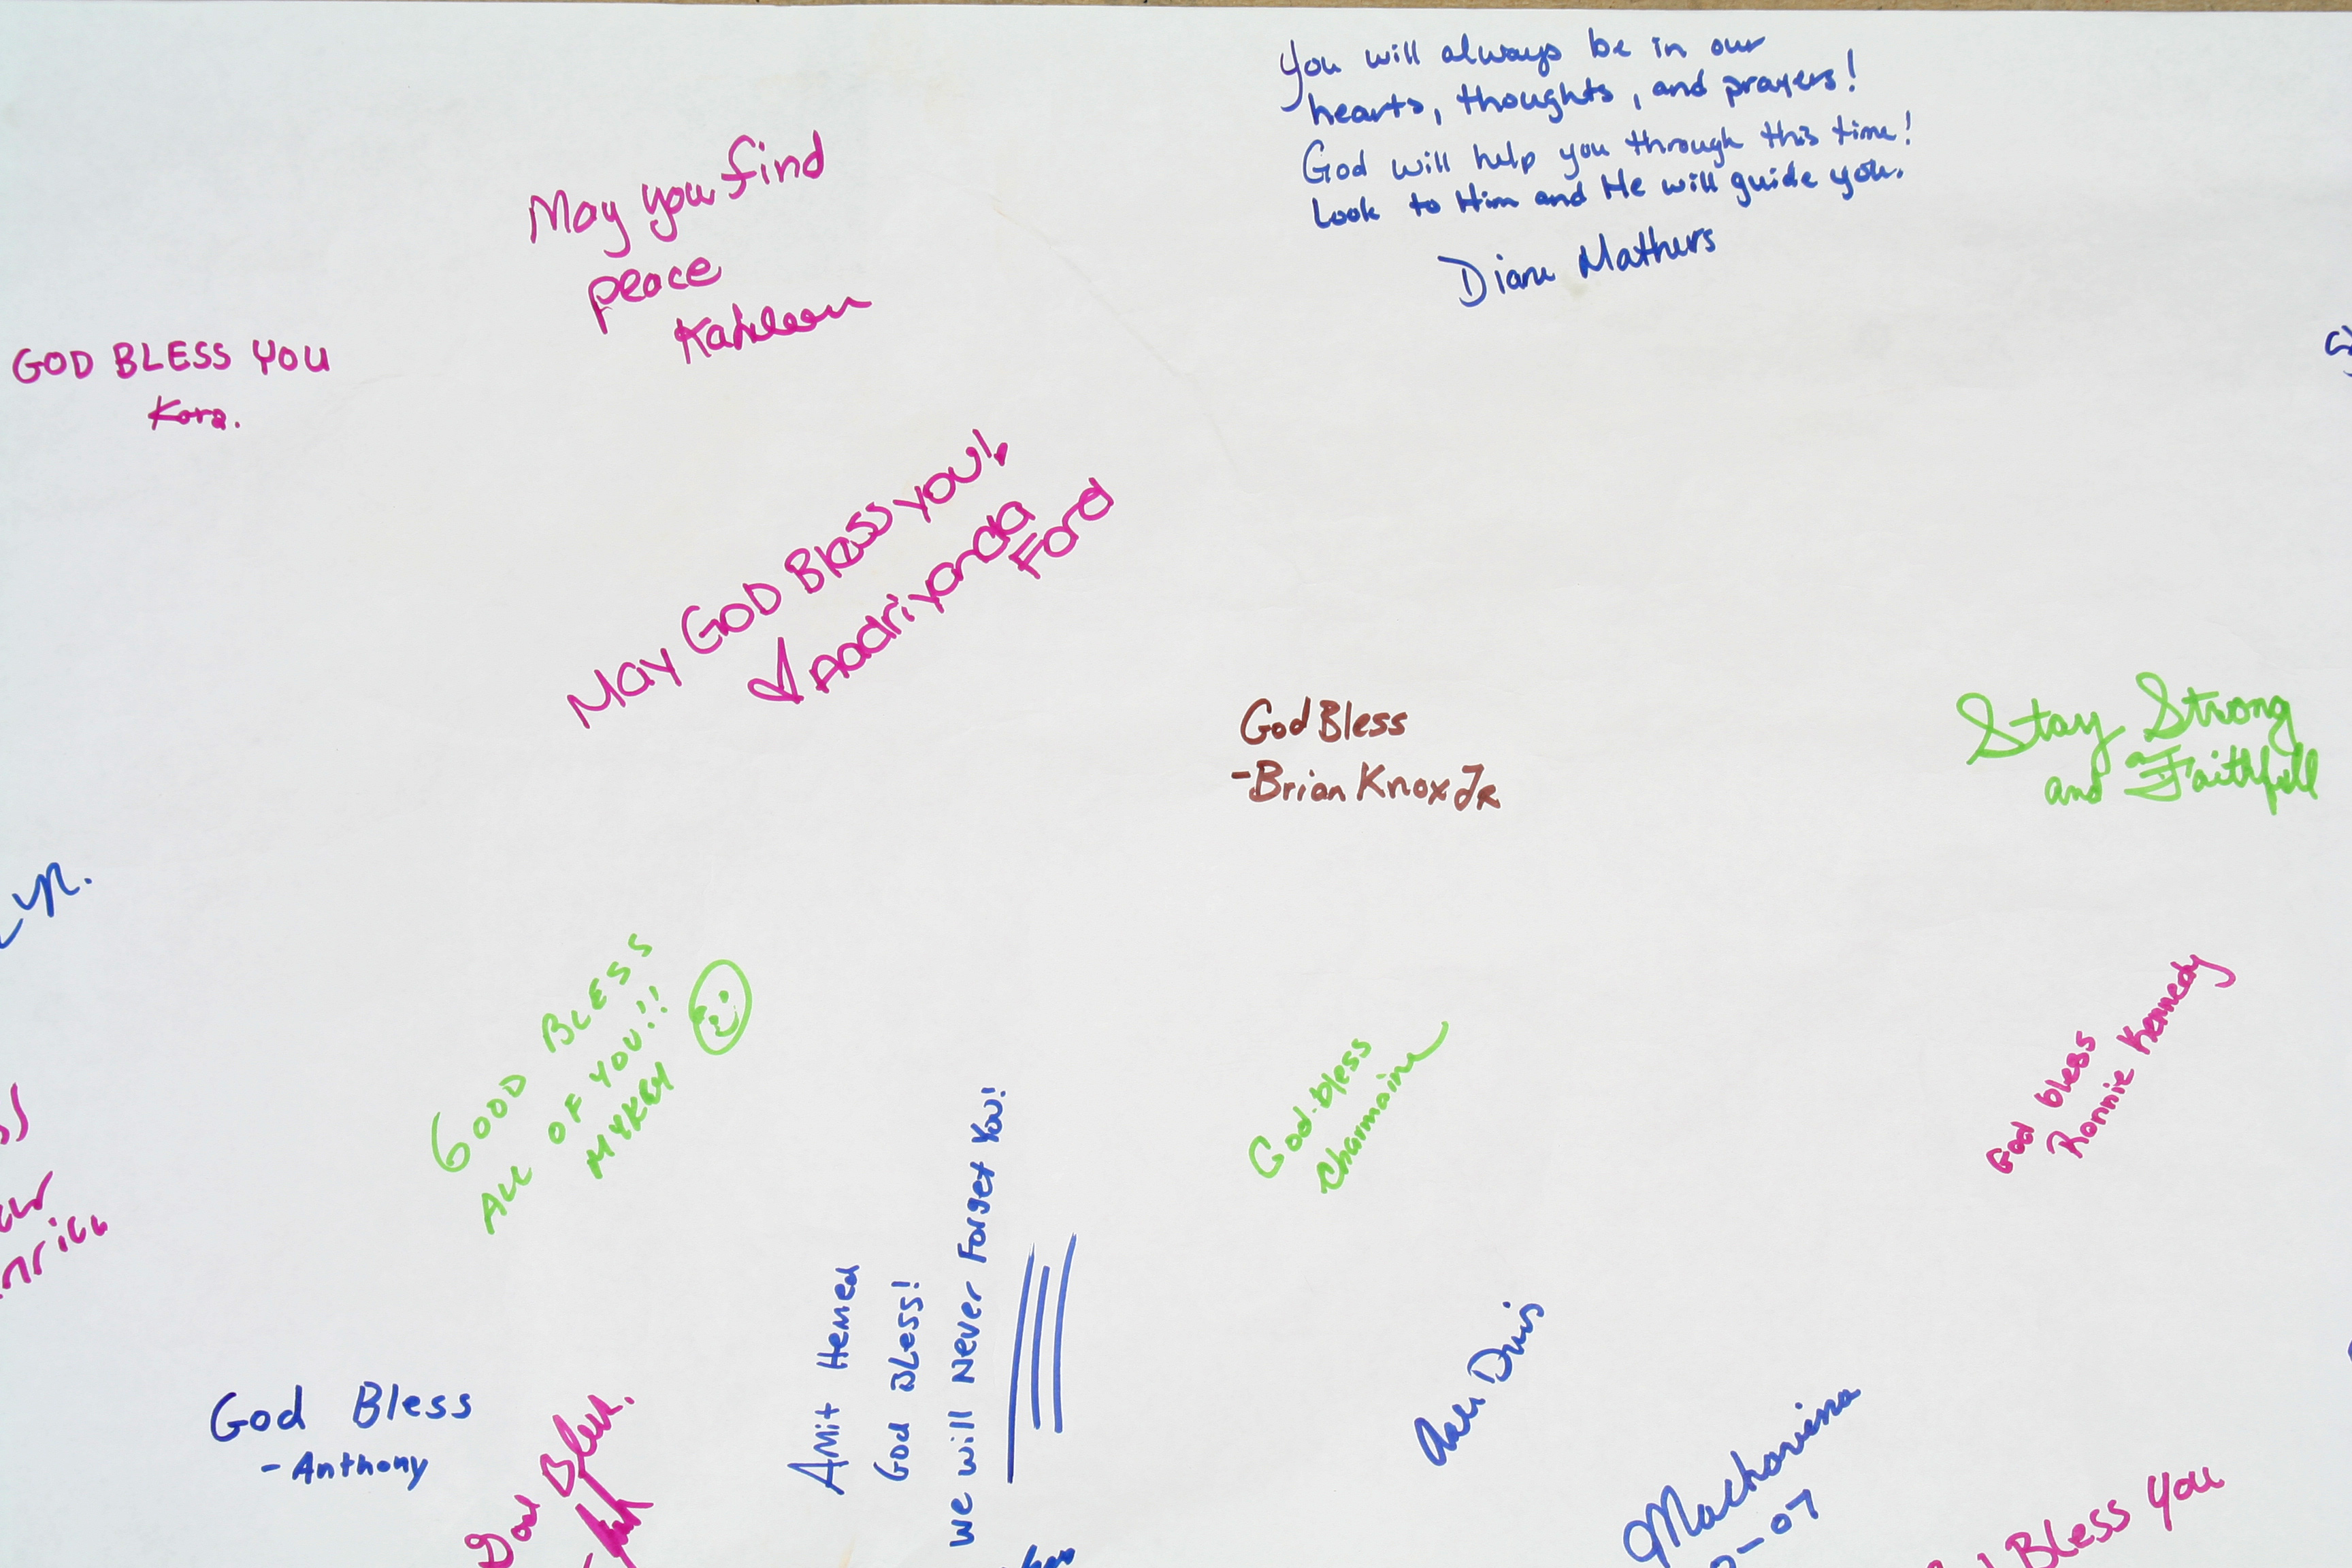 You will always be in our
hearts, thoughts, and prayers!
God will help you through this time!
Look to Him and He will guide you.
Diane Mathers
May you find
peace
Kathleen
GOD BLESS YOU
Kora.
May GOD Bless you!
Aadriyanda
Ford
God Bless
-Brian Knox JR
Stay Strong
and Faithfull
GOOD BLESS
ALL OF YOU!!
MYKEY
God bless
Charmaine
God bless
Ronnie Kennedy
Amit Hemed
God Bless!
We will Never Forget You!
God Bless
- Anthony
God Bless.
Davis
-07
Bless you